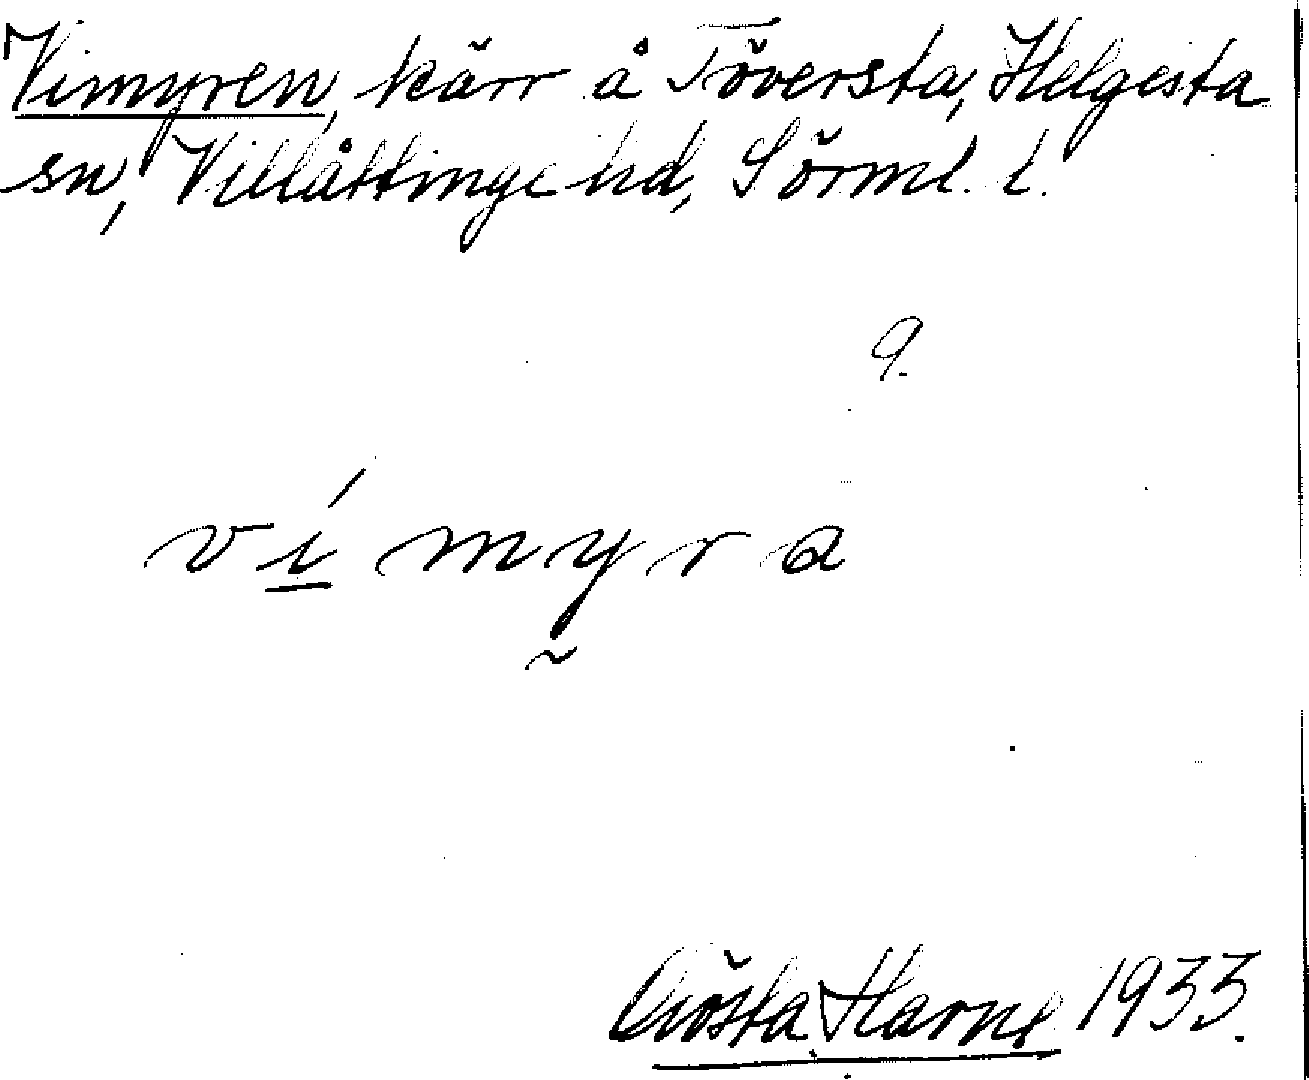 Vimyren, kärr å Töversta, Helgesta
sn, Villåttinge hd, Sörml. l.
9.
vi myra
Gösta Harne 1933.